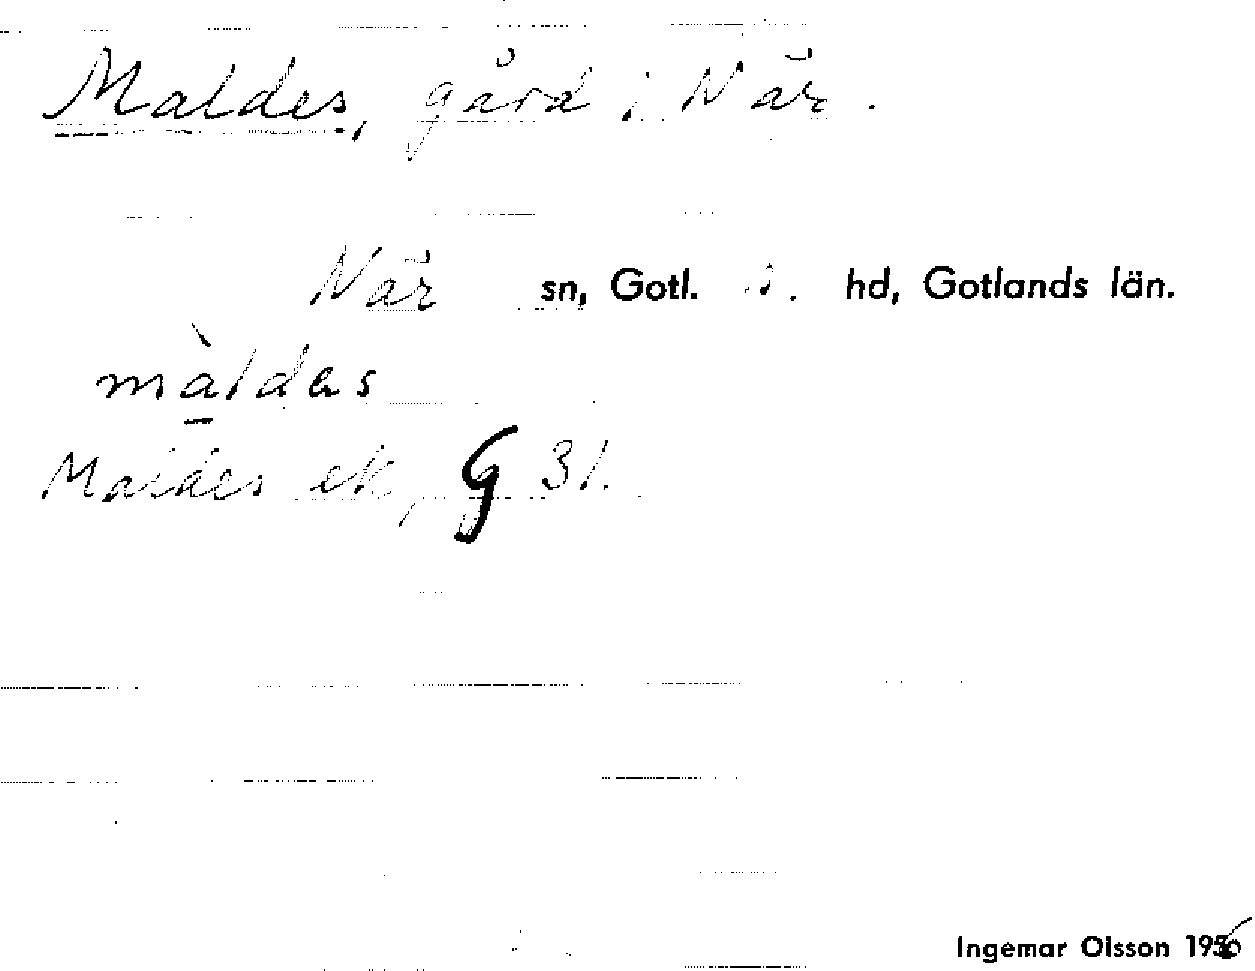 Maldes, gård i När.
När sn, Gotl. s. hd, Gotlands län.
màldas
Maldes ek, G 31.
Ingemar Olsson 1956